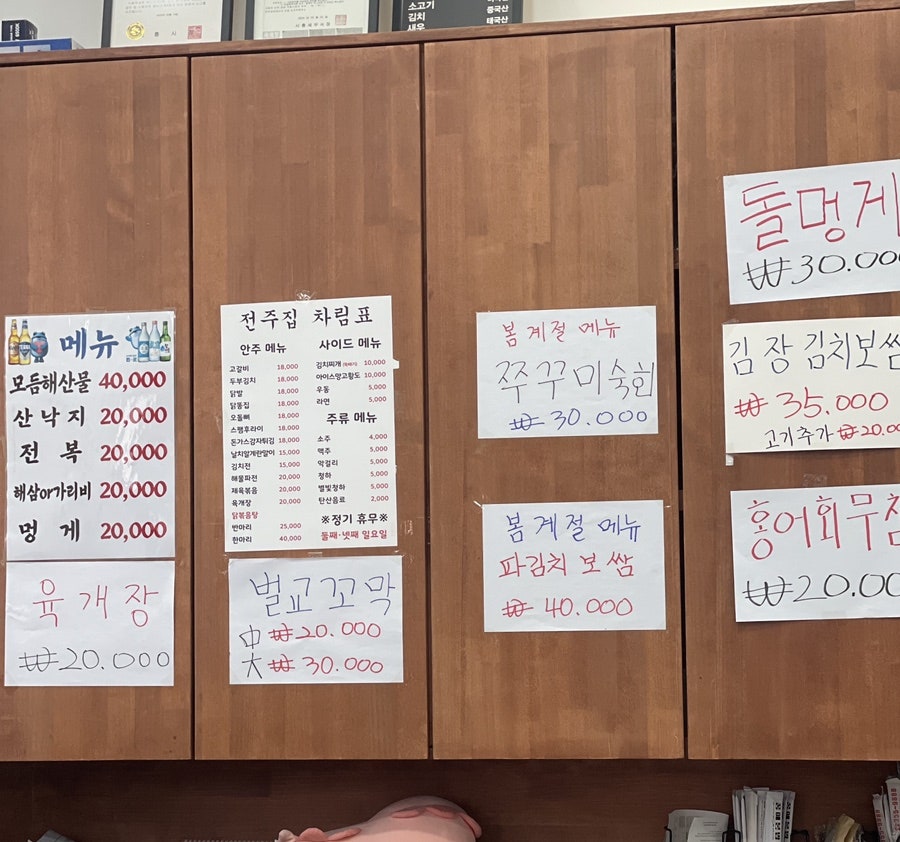 소고기
김치
새우
중국산
태국산
메뉴
모듬해산물 40,000
산낙지 20,000
전복 20,000
해삼or가리비 20,000
멍게 20,000
육개장
₩20.000
전주집 차림표
안주 메뉴
고갈비 18,000
두부김치 18,000
닭발 18,000
닭똥집 18,000
오돌뼈 18,000
스팸후라이 18,000
돈가스감자튀김 18,000
날치알계란말이 15,000
김치전 15,000
해물파전 20,000
제육볶음 20,000
육개장 20,000
닭볶음탕
반마리 25,000
한마리 40,000
사이드 메뉴
김치찌개 10,000
아이스망고황도 10,000
우동 5,000
라면 5,000
주류 메뉴
소주 4,000
맥주 5,000
막걸리 5,000
청하 5,000
별빛청하 5,000
탄산음료 2,000
※정기 휴무※
둘째·넷째 일요일
벌교꼬막
中 ₩20.000
大 ₩30.000
봄 계절 메뉴
쭈꾸미숙회
₩30.000
봄 계절 메뉴
파김치 보쌈
₩40.000
돌멍게
₩30.000
김장김치보쌈
₩35.000
고기추가 ₩20.00
홍어회무침
₩20.00